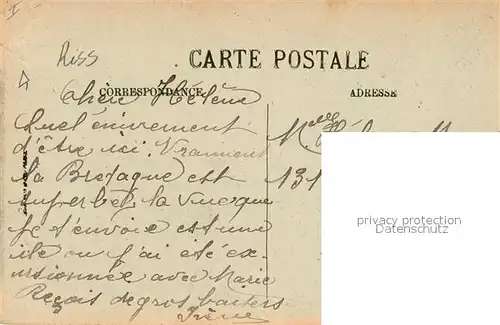 Riss
CARTE POSTALE
CORRESPONDANCE
ADRESSE
Chère Hélène
Quel énivrement
d'être ici. Vraiment
la Bretagne est
superbe, la vue que
je t'envoie est une
île où j'ai été ex-
cursionnée avec Marie
Reçois de gros baisers
Melle
131
privacy protection